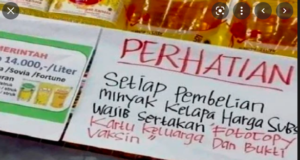 MERINTAH
14.000,-/Liter
/Sovia/Fortune
PERHATIAN
Setiap Pembelian
Minyak Kelapa Harga Subs
Wajib Sertakan Fotocopy
Kartu Keluarga Dan Bukti
Vaksin